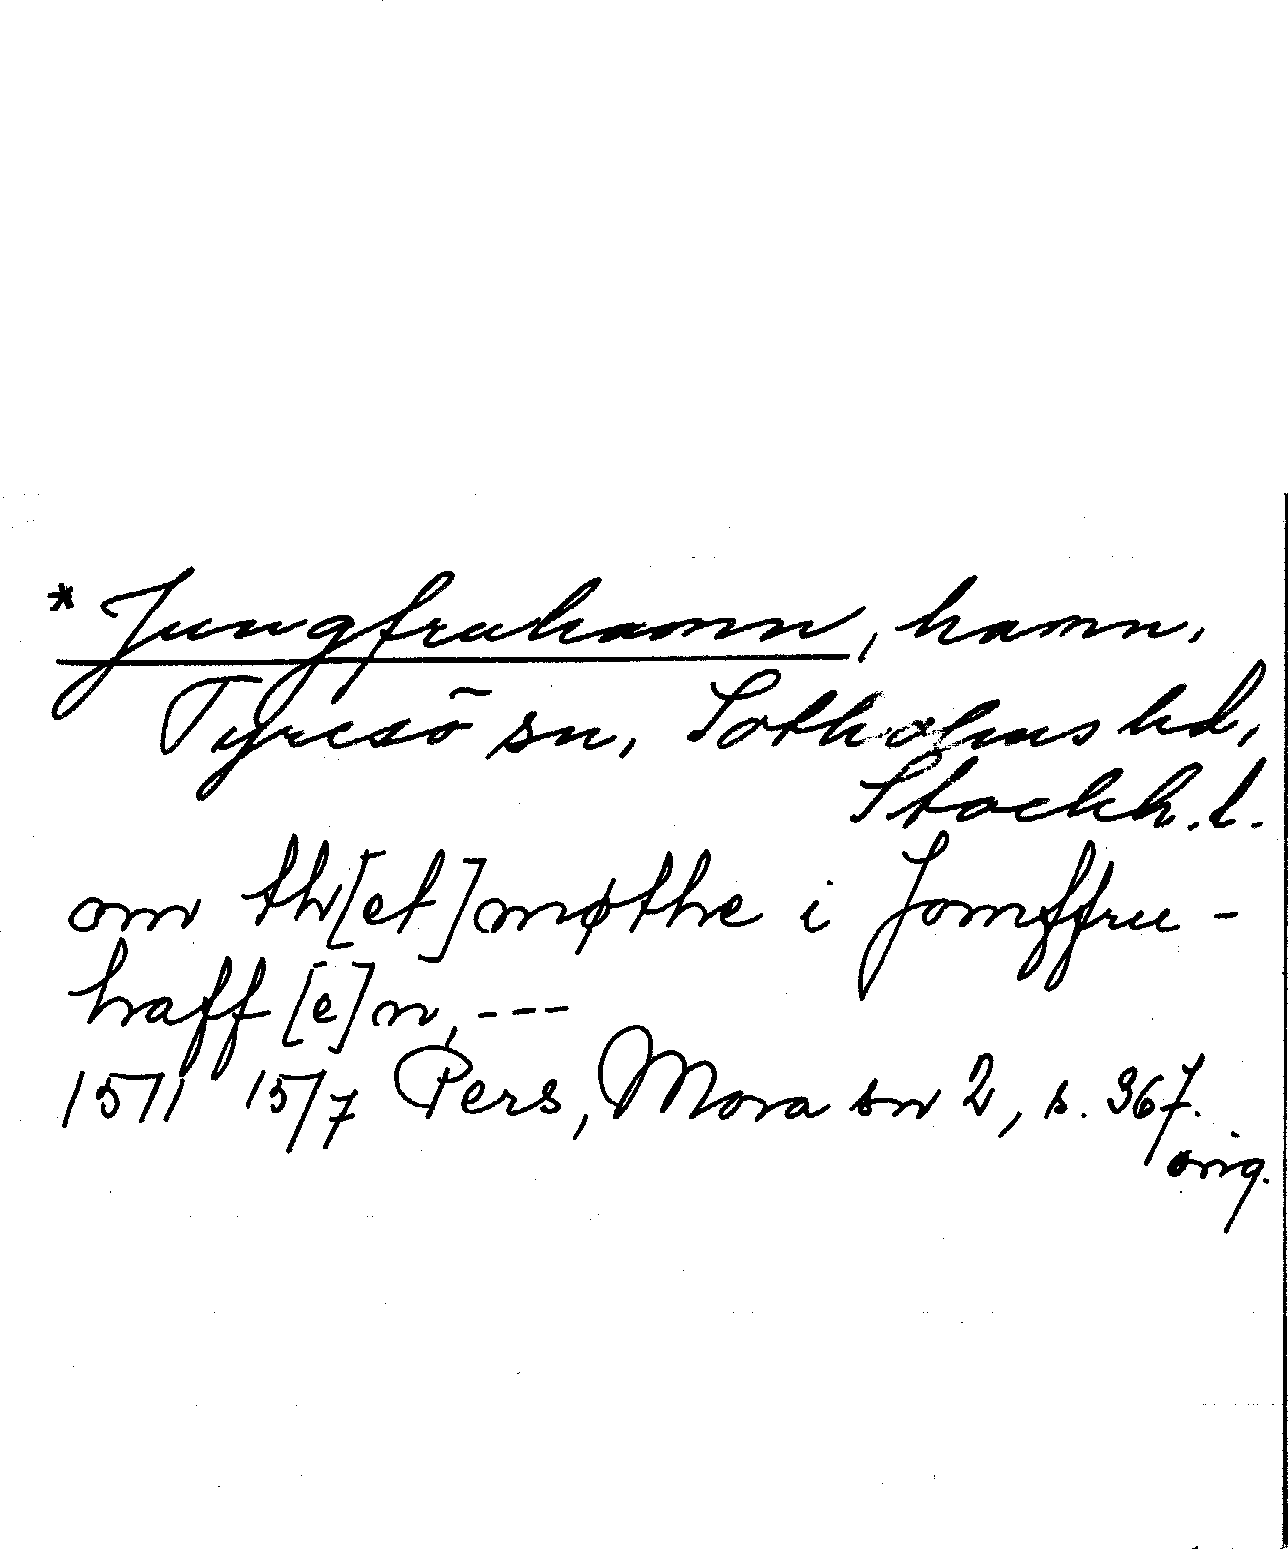 * Jungfruhamn, hamn,
Tyresö sn, Sotholms hd,
Stockh. l.
om th[et] møthe i Jomffru-
haff[e]n, ---
1511 15/7 Pers, Mora sn 2, s. 367.
orig.